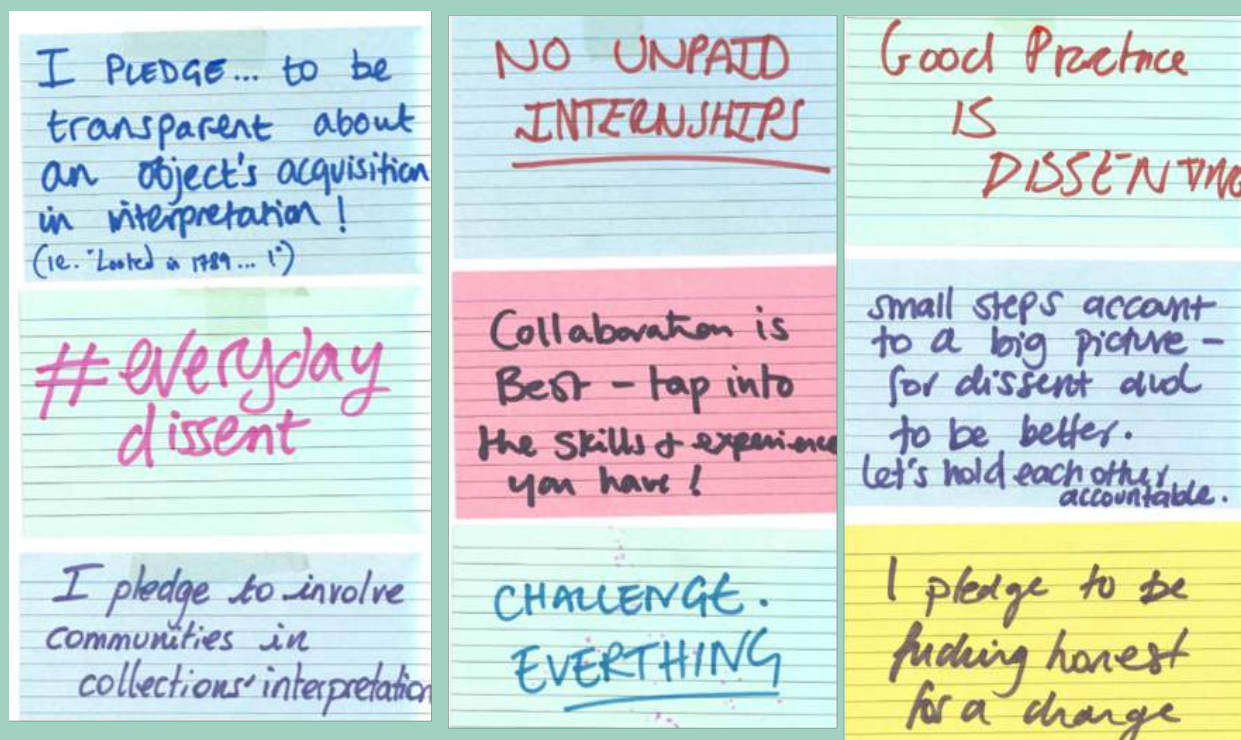 I PLEDGE... to be
transparent about
an object's acquisition
in interpretation!
(ie. "Looted in 1789... !")
#everyday
dissent
I pledge to involve
communities in
collections' interpretation
NO UNPAID
INTERNSHIPS
Collaboration is
Best - tap into
the skills & experience
you have!
CHALLENGE.
EVERTHING
Good Practice
IS
DISSENTING
small steps account
to a big picture -
for dissent and
to be better.
Let's hold each other
accountable.
I pledge to be
fucking honest
for a change